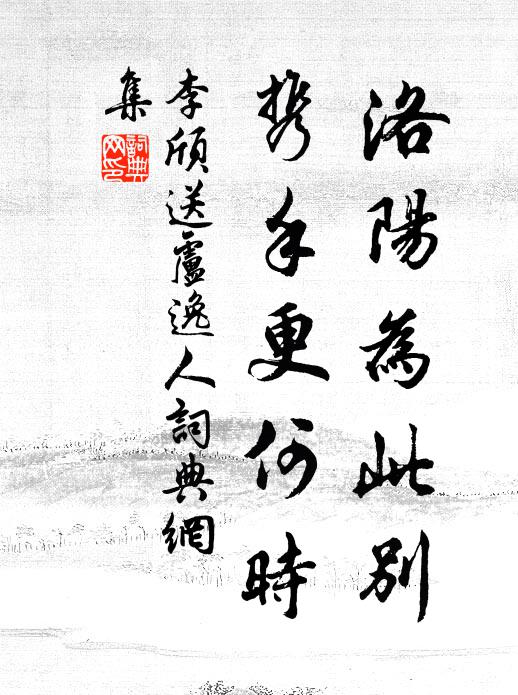 洛陽為此別
携手更何時
李頎送盧逸人詞典網
集
詞典網印